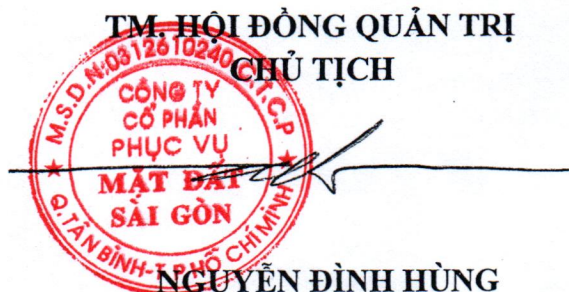 TM. HỘI ĐỒNG QUẢN TRỊ
CHỦ TỊCH
M.S.D.N:0312610240-C.T.C.P
CÔNG TY
CỔ PHẦN
PHỤC VỤ
MẶT ĐẤT
SÀI GÒN
Q.TÂN BÌNH-T.P HỒ CHÍ MINH
NGUYỄN ĐÌNH HÙNG